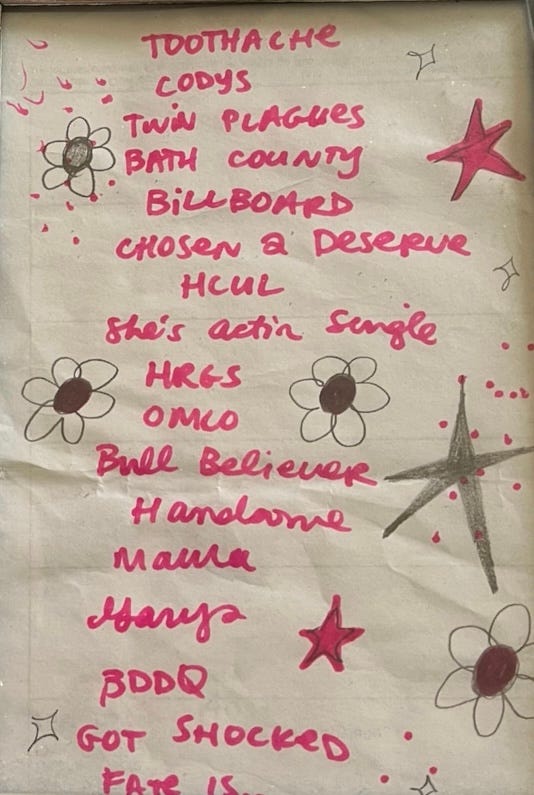 TOOTHACHE
CODYS
TWIN PLAGUES
BATH COUNTY
BILLBOARD
CHOSEN 2 DESERVE
HCUL
She's actin Single
HRGS
OMCO
Bull Believer
Handsome
Maura
Garys
BDDQ
GOT SHOCKED
FATE IS...